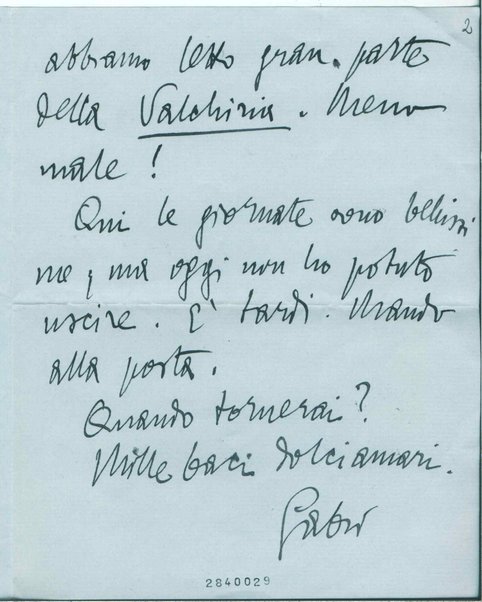 2
abbiamo letto gran parte
della Valchiria. Meno
male!
Qui le giornate sono bellissi
me, ma oggi non ho potuto
uscire. È tardi. Mando
alla posta.
Quando tornerai?
Mille baci dolciamari.
Gabri
2840029